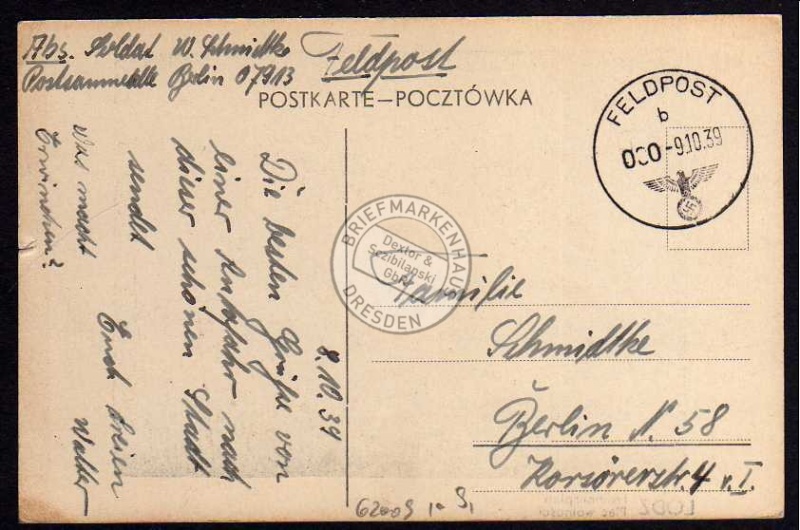 Abs. Soldat W. Schmidtke
Postsammelstelle Berlin 07913
Feldpost
POSTKARTE—POCZTÓWKA
FELDPOST
b
000
-9.10.39
8.10.39
Die besten Grüße von
einer Autofahr nach
dieser schönen Stadt
sendet
Euch dreien
Walter
Was macht
Erwinchen?
Familie
Schmidtke
Berlin N. 58
Korsörerstr. 4 v. I.
BRIEFMARKENHAUS
Dextor &
Sczibilanski
GbR
DRESDEN
62009
LODZ
Plac wolności